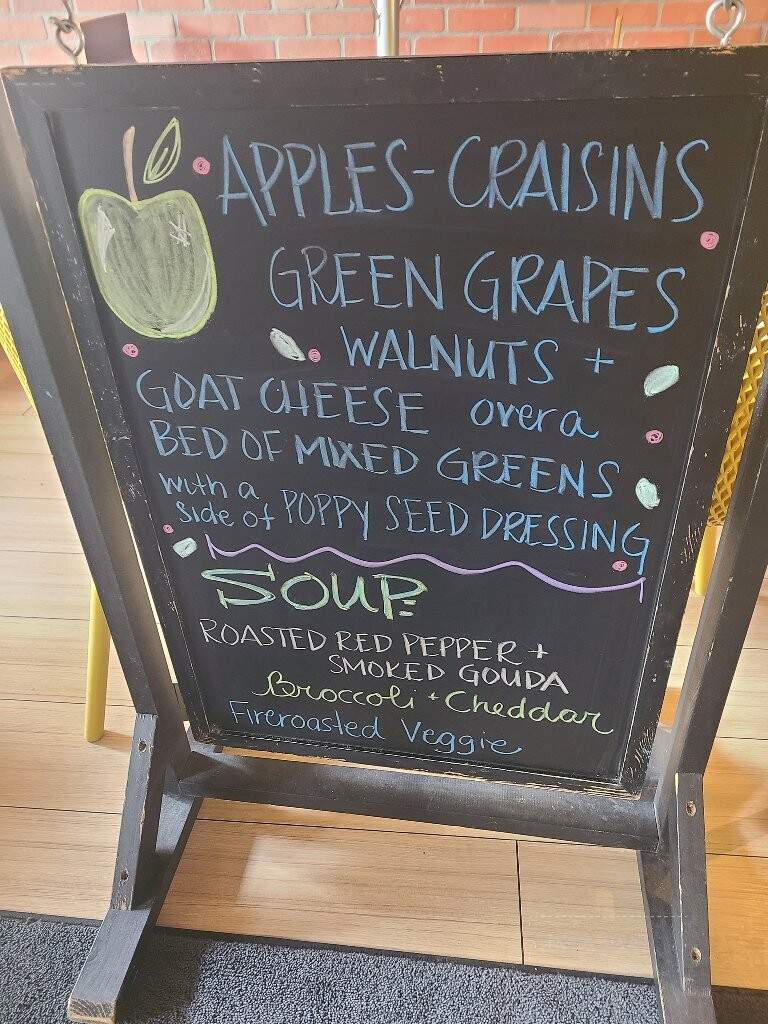 APPLES-CRAISINS
GREEN GRAPES
WALNUTS +
GOAT CHEESE over a
BED OF MIXED GREENS
with a
side of POPPY SEED DRESSING
SOUP:
ROASTED RED PEPPER +
SMOKED GOUDA
Broccoli + Cheddar
Fireroasted Veggie